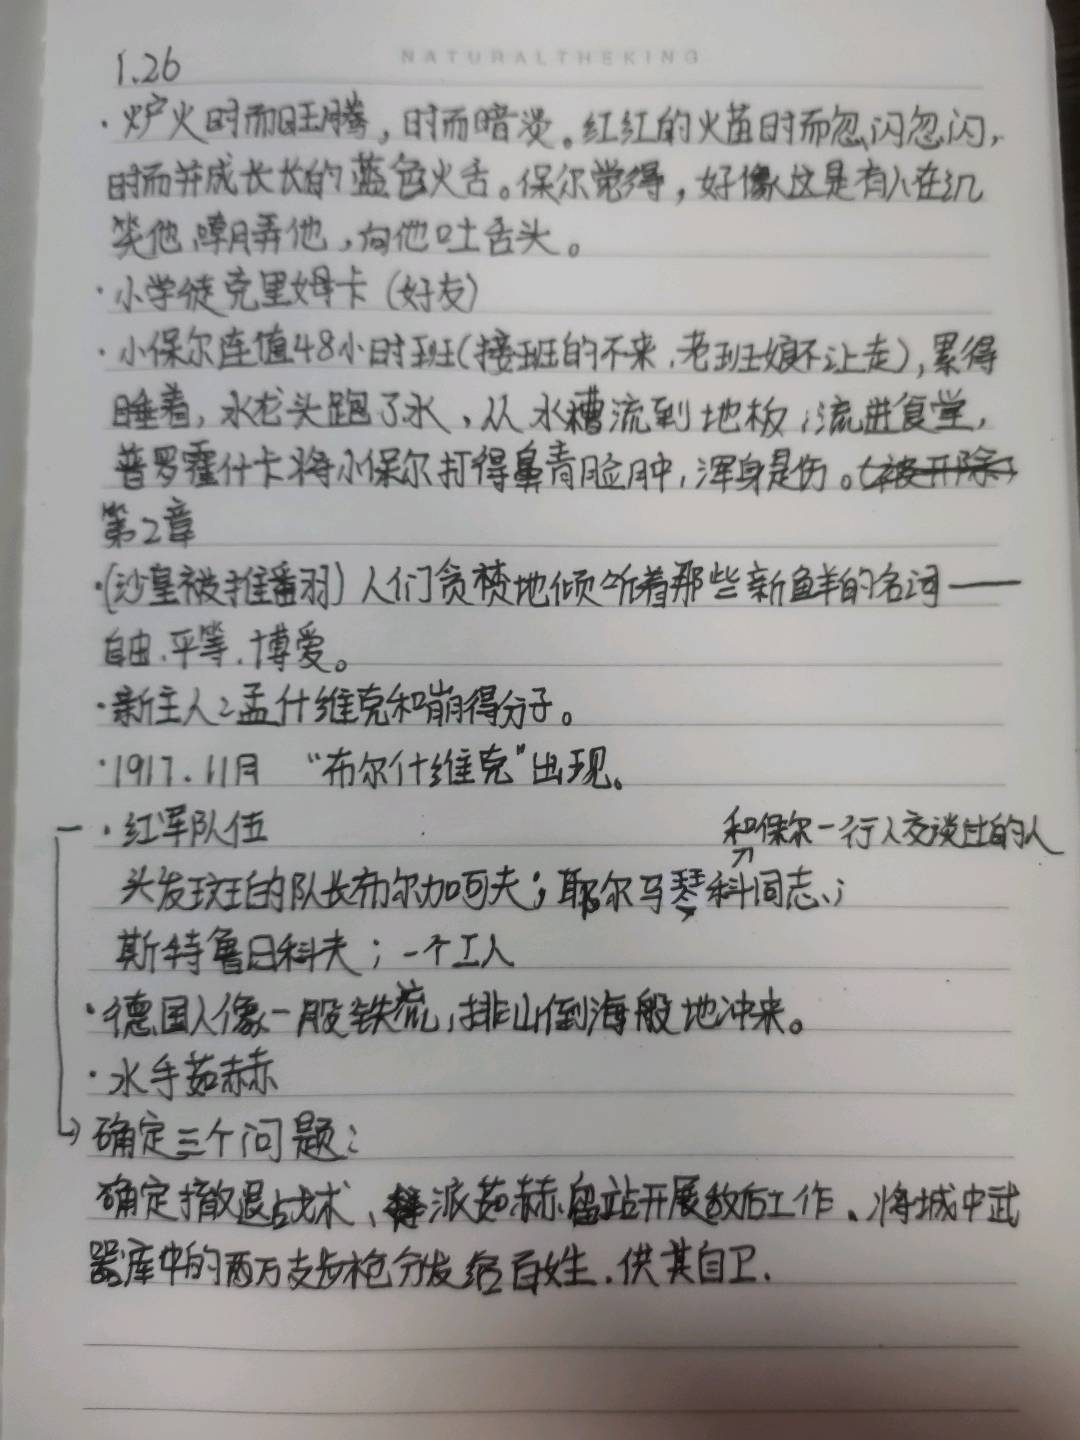 NATURALTHEKING
1.26
·炉火时而旺腾，时而暗淡。红红的火苗时而忽闪忽闪，
时而并成长长的蓝色火舌。保尔觉得，好像这是有人在讥
笑他，嘲弄他，向他吐舌头。
·小学徒克里姆卡（好友）
·小保尔连值48小时班(接班的不来，老班娘不让走)，累得
睡着，水龙头跑了水，从水槽流到地板，流进食堂，
普罗霍什卡将小保尔打得鼻青脸肿，浑身是伤。(被开除)
第2章
·(沙皇被推翻)人们贪婪地倾听着那些新鲜的名词——
自由、平等、博爱。
·新主人：孟什维克和崩得分子。
·1917.11月 “布尔什维克”出现。
·红军队伍
和保尔一行人交谈过的人
头发斑白的队长布尔加可夫；耶尔马琴科同志；
斯特鲁日科夫；一个工人
·德国人像一股铁流，排山倒海般地冲来。
·水手茹赫
确定三个问题：
确定撤退战术、派茹赫留站开展敌后工作、将城中武
器库中的两万支步枪分发给百姓，供其自卫.